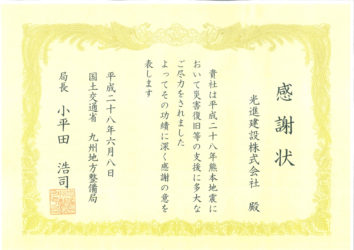 感謝状
光進建設株式会社 殿
貴社は平成二十八年熊本地震に
おいて災害復旧等の支援に多大な
ご尽力をされました
よってその功績に深く感謝の意を
表します
平成二十八年六月八日
国土交通省 九州地方整備局
局長 小平田 浩司